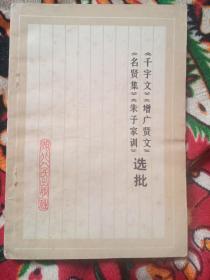 《千字文》《增广贤文》
《名贤集》《朱子家训》
选批